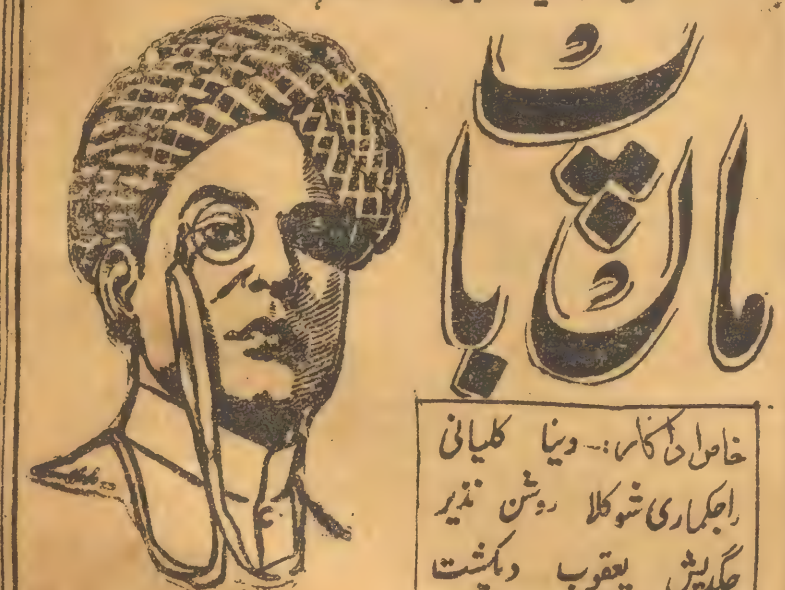 ماں باپ
خاص اداکار:۔ وینا کلیانی
راجکماری شوکلا روشن نذیر
جگدیش یعقوب دیکشت